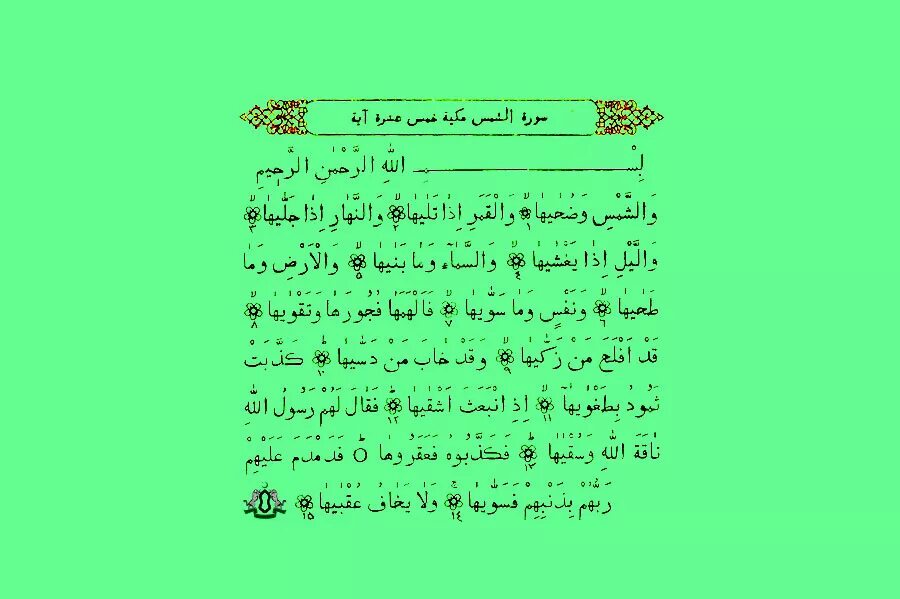 سورة الشمس مكية خمس عشرة آية
بِسْــــــمِ اللّٰهِ الرَّحْمٰنِ الرَّحٖيمِ
وَالشَّمْسِ وَضُحٰيهَاۙ ١ وَالْقَمَرِ اِذَا تَلٰيهَاۙ ٢ وَالنَّهَارِ اِذَا جَلّٰيهَاۙ ٣
وَالَّيْلِ اِذَا يَغْشٰيهَاۙ ٤ وَالسَّمَٓاءِ وَمَا بَنٰيهَاۙ ٥ وَالْاَرْضِ وَمَا
طَحٰيهَاۙ ٦ وَنَفْسٍ وَمَا سَوّٰيهَاۙ ٧ فَاَلْهَمَهَا فُجُورَهَا وَتَقْوٰيهَاۙ ٨
قَدْ اَفْلَحَ مَنْ زَكّٰيهَاۙ ٩ وَقَدْ خَابَ مَنْ دَسّٰيهَاؕ ١٠ كَذَّبَتْ
ثَمُودُ بِطَغْوٰيهَاۙٓ ١١ اِذِ انْبَعَثَ اَشْقٰيهَاؕ ١٢ فَقَالَ لَهُمْ رَسُولُ اللّٰهِ
نَاقَةَ اللّٰهِ وَسُقْيٰهَاؕ ١٣ فَكَذَّبُوهُ فَعَقَرُوهَاؕ فَدَمْدَمَ عَلَيْهِمْ
رَبُّهُمْ بِذَنْبِهِمْ فَسَوّٰيهَاۚ ١٤ وَلَا يَخَافُ عُقْبٰيهَا ١٥